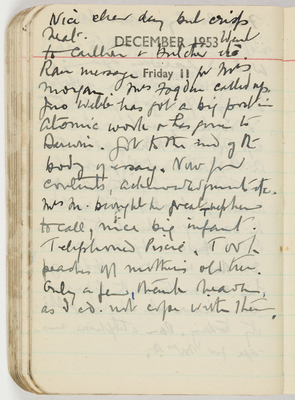 Nice clear day but crisp
heat. Went
DECEMBER 1953
to Caulher & Butcher etc
Ran message for Mrs
Friday 11
Morgan. Mrs Fogden called up.
Jno Webb has got a big post in
Atomic work & has gone to
Darwin. Got to the end of the
body of essay. Now for
contents, acknowledgments etc.
Mrs M. brought her great nephew
to call, nice big infant.
Telephoned. Took
peaches off mothers old tree.
Only a few, thank heaven,
as I cd. not cope with them.